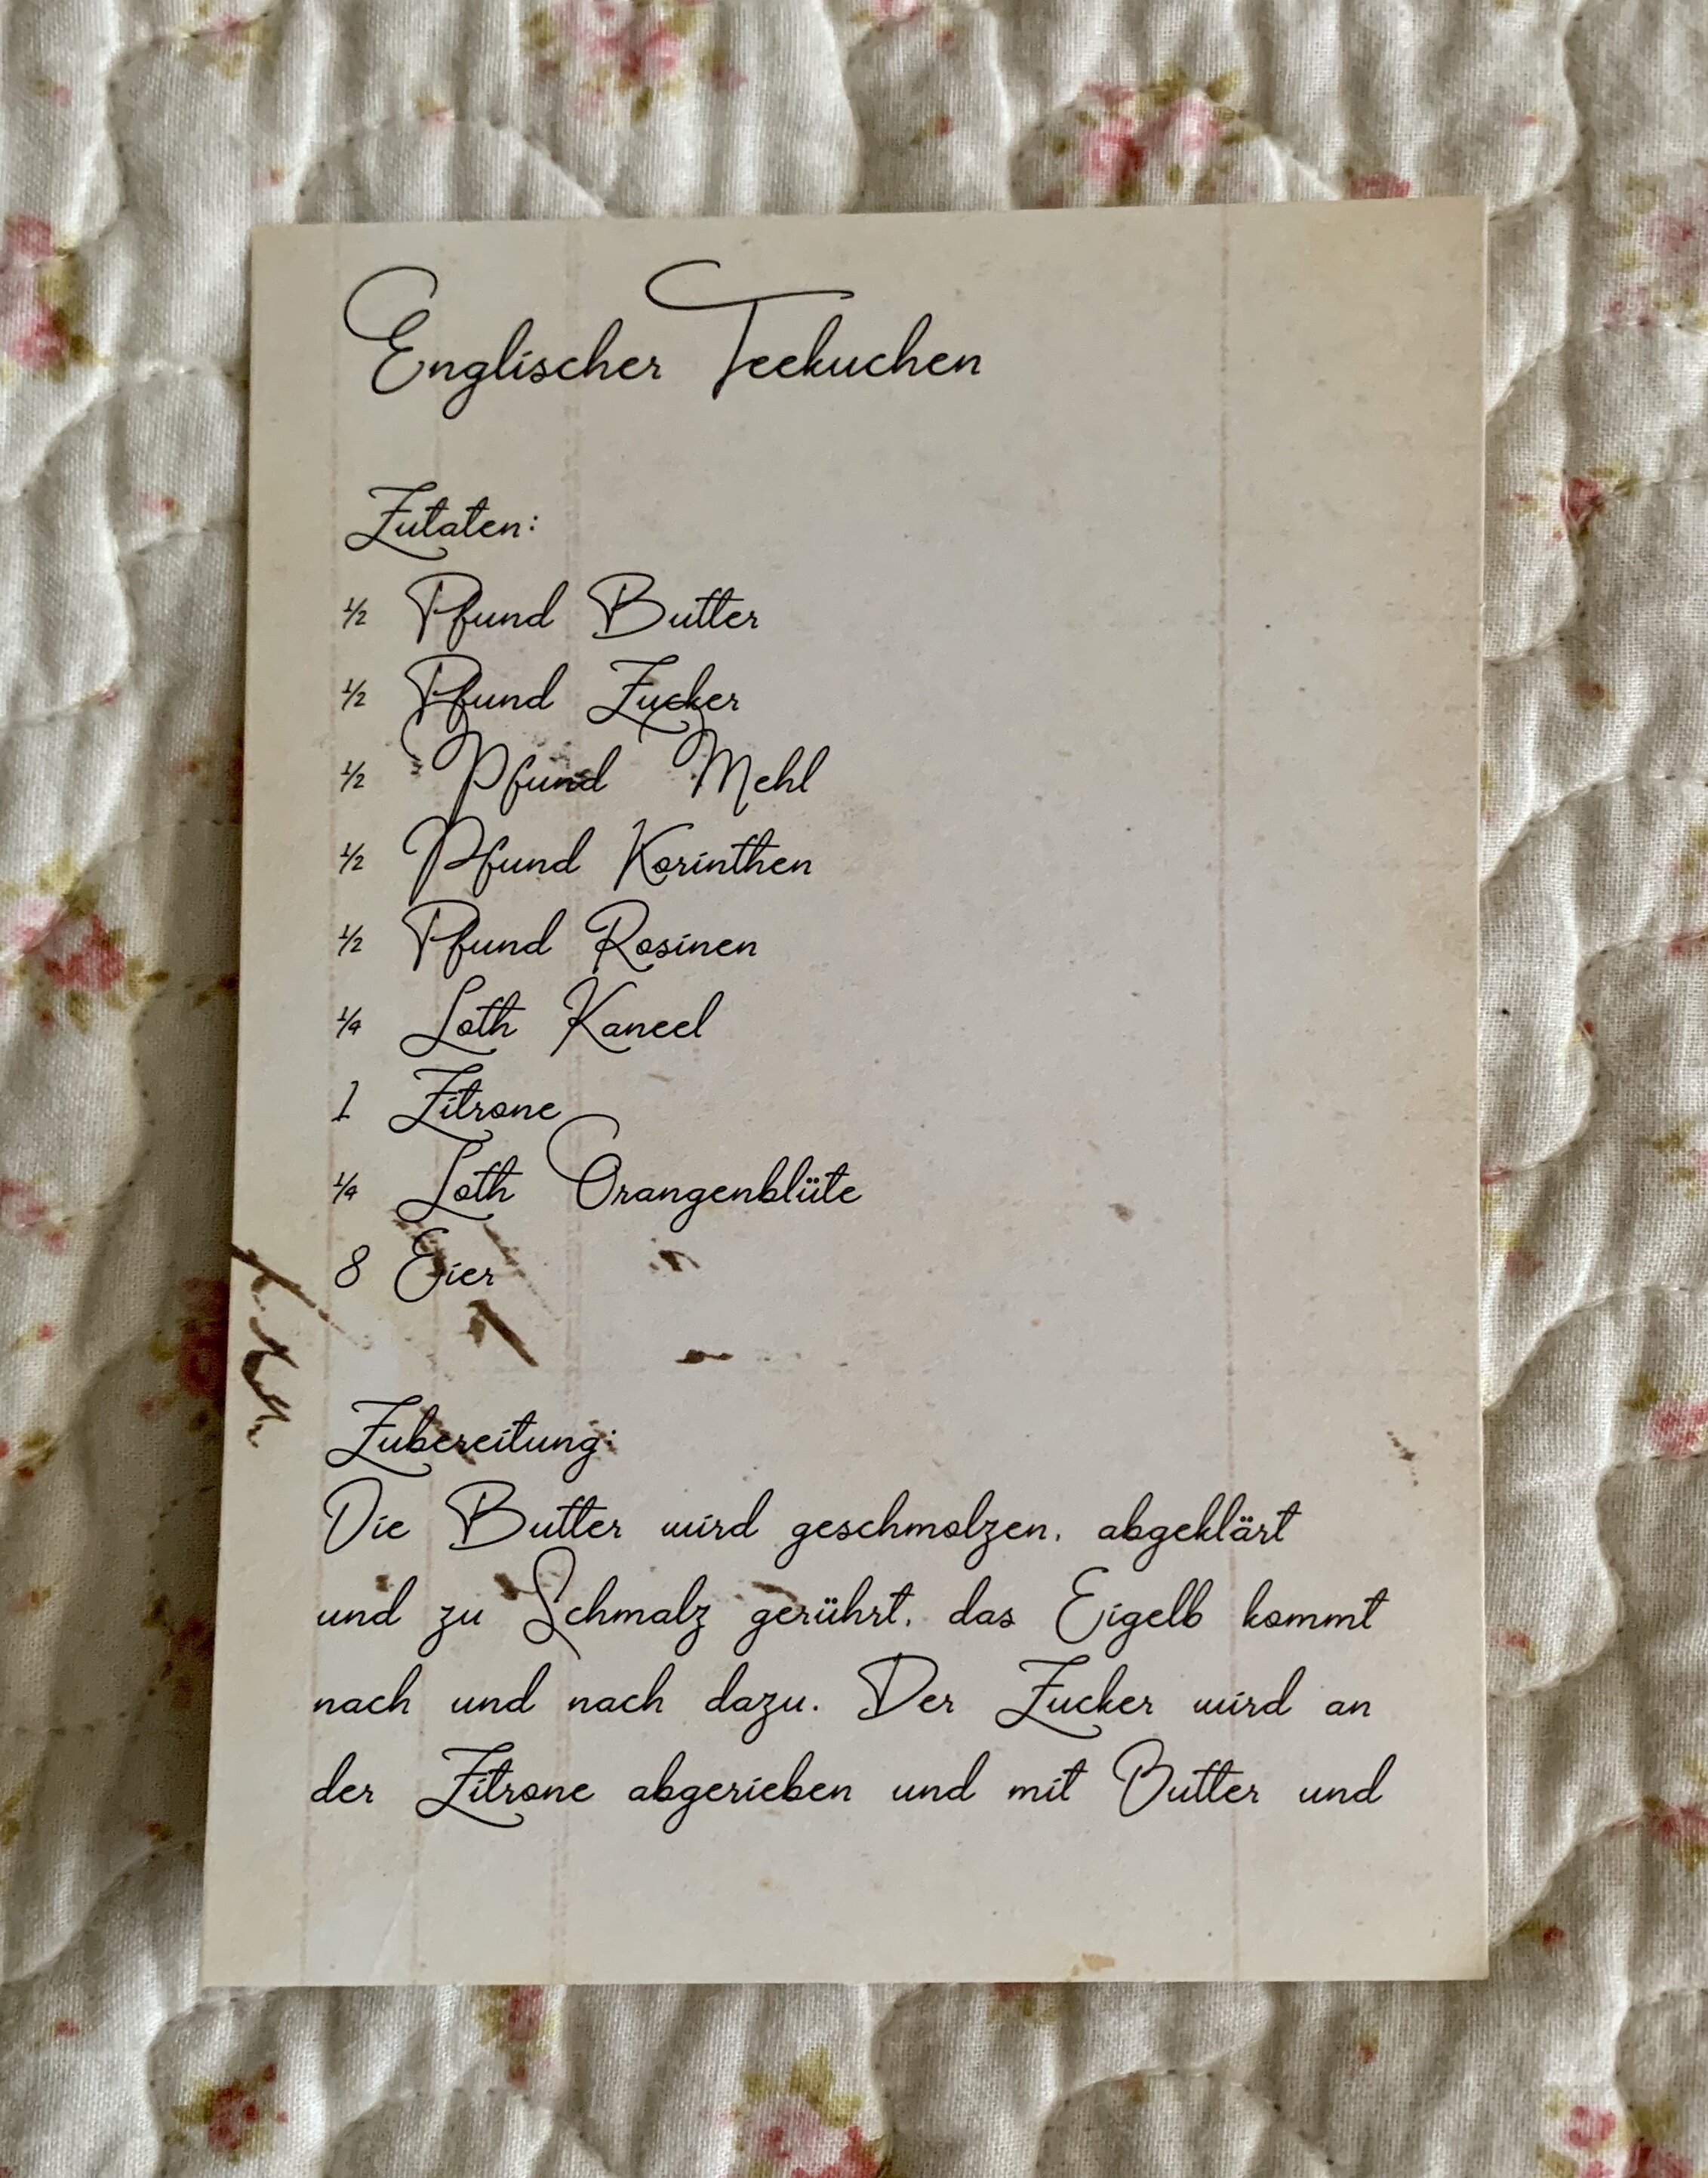 Englischer Teekuchen
Zutaten:
½ Pfund Butter
½ Pfund Zucker
½ Pfund Mehl
½ Pfund Korinthen
½ Pfund Rosinen
¼ Loth Kaneel
1 Zitrone
¼ Loth Orangenblüte
8 Eier
Zubereitung:
Die Butter wird geschmolzen, abgeklärt
und zu Schmalz gerührt, das Eigelb kommt
nach und nach dazu. Der Zucker wird an
der Zitrone abgerieben und mit Butter und